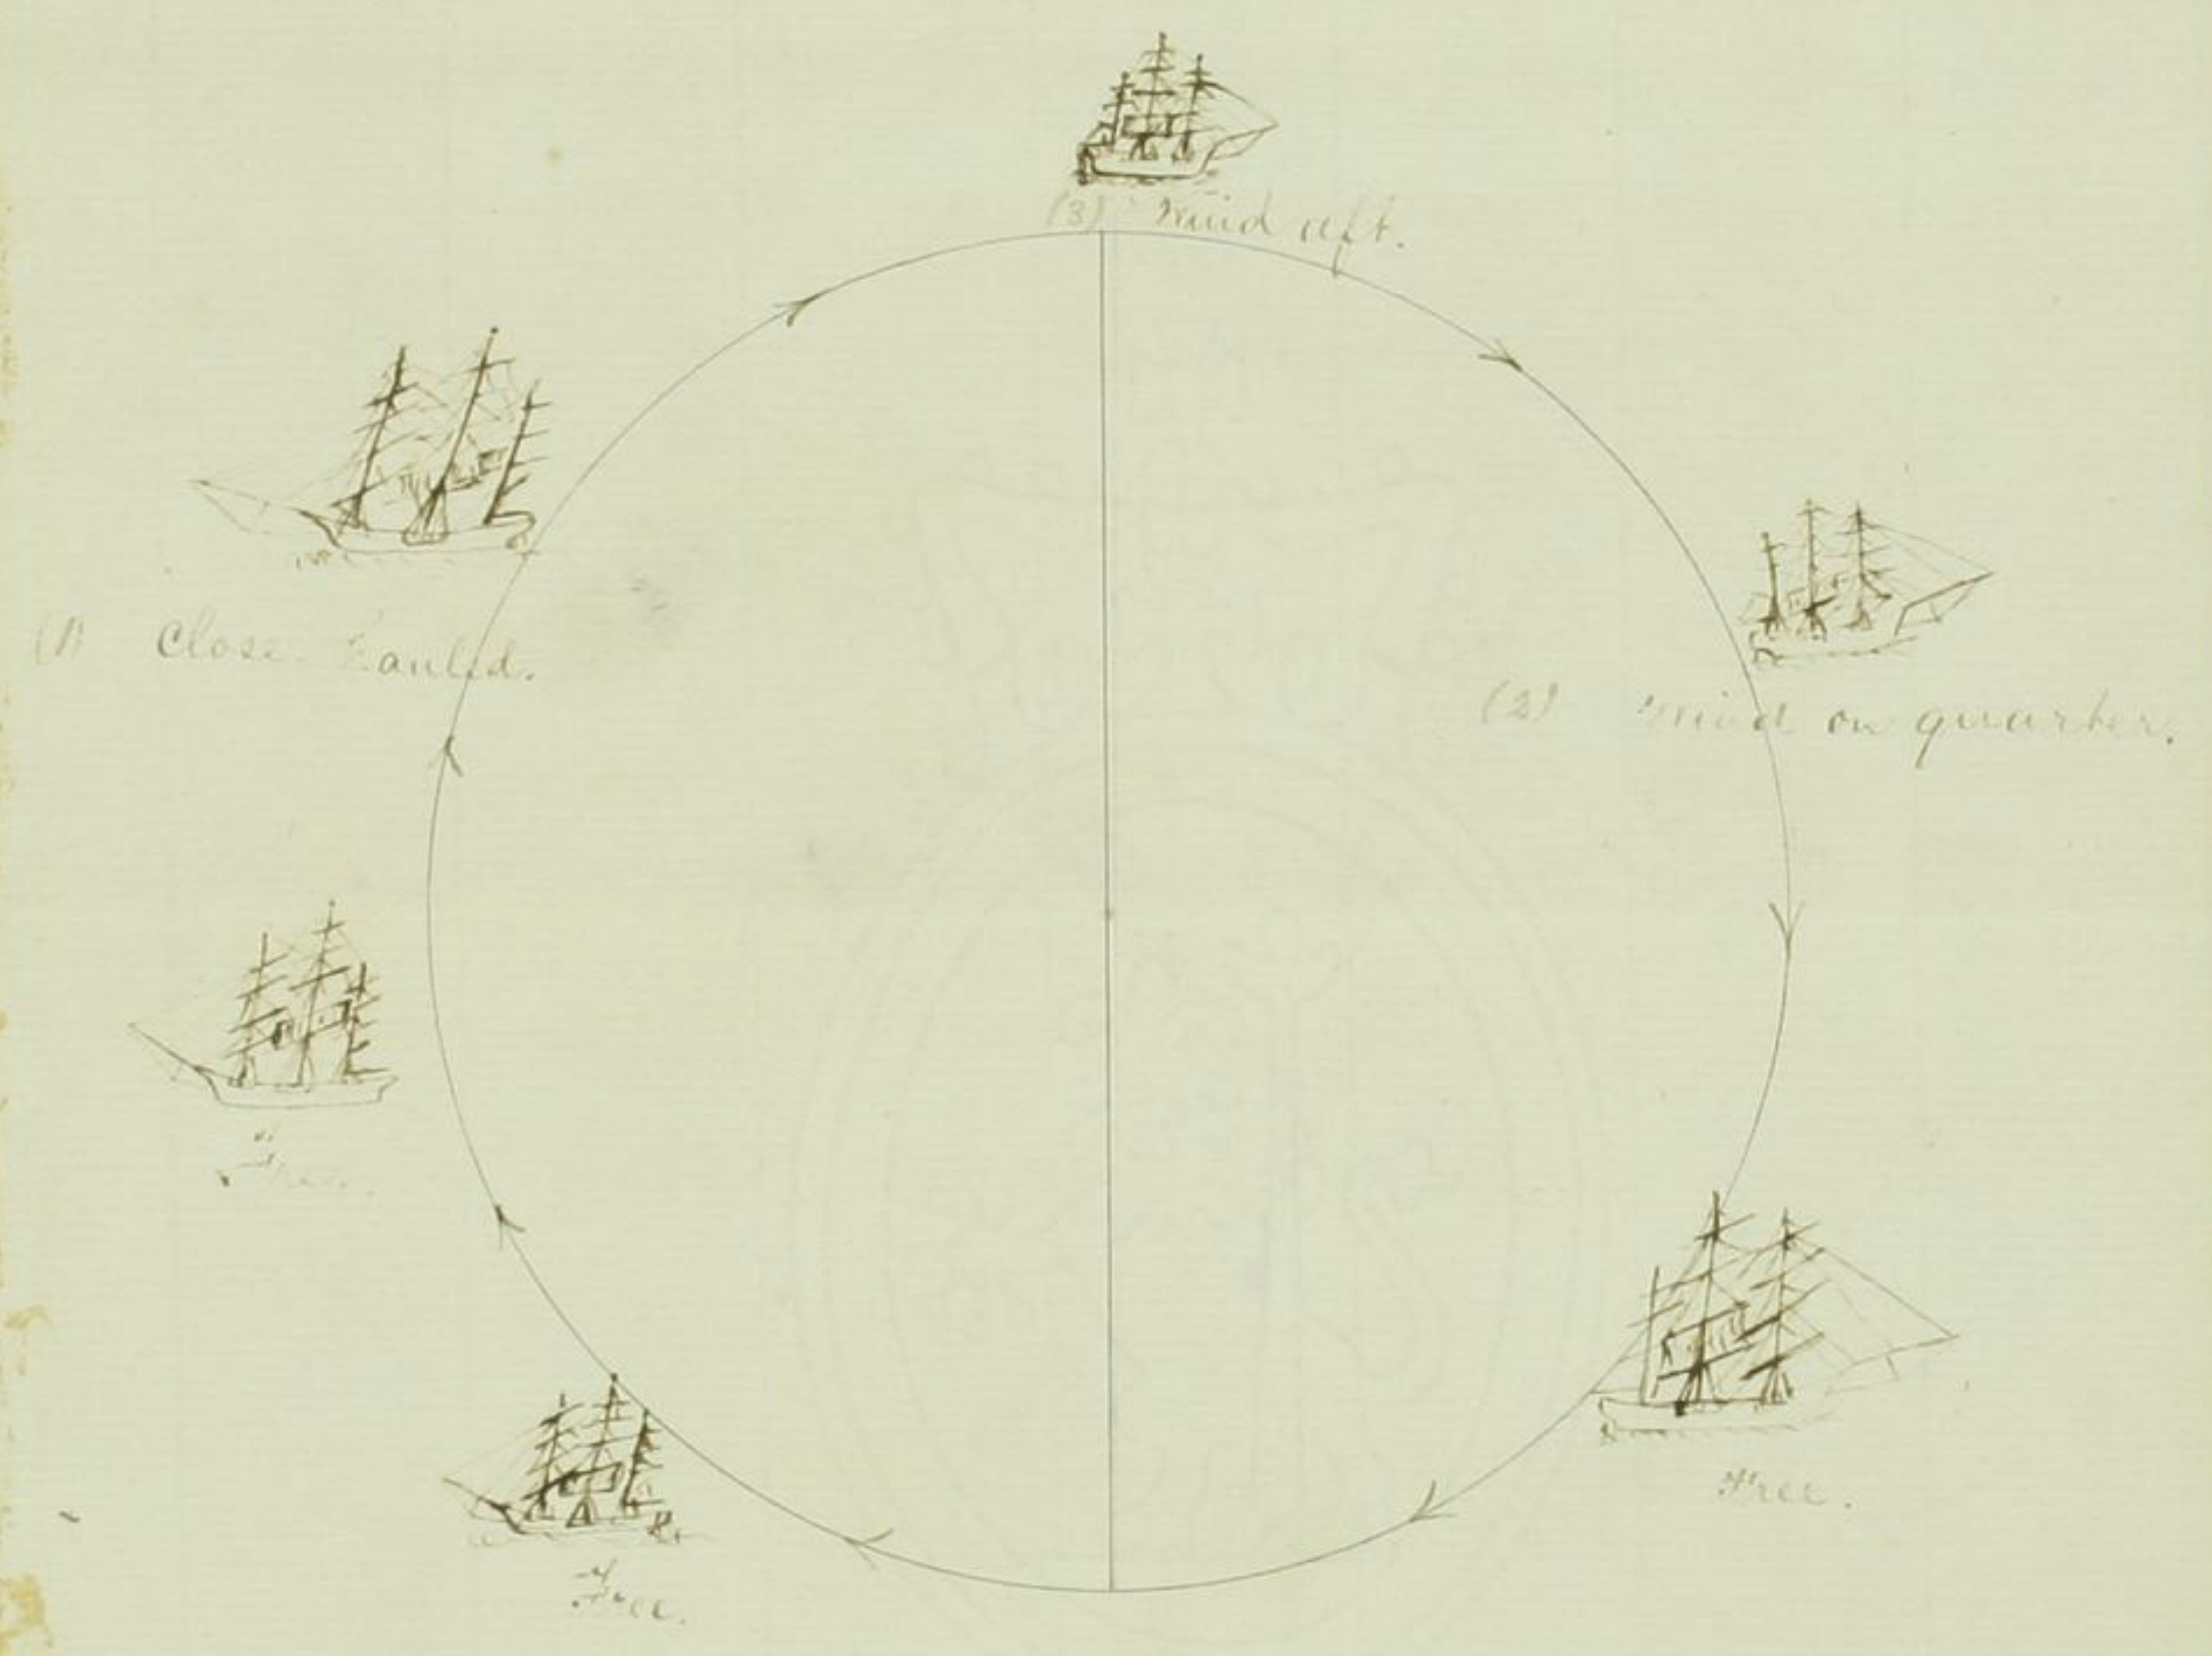 (3) Wind aft.
(1) Close Hauled.
(2) Wind on quarter.
Free.
Free.
Free.